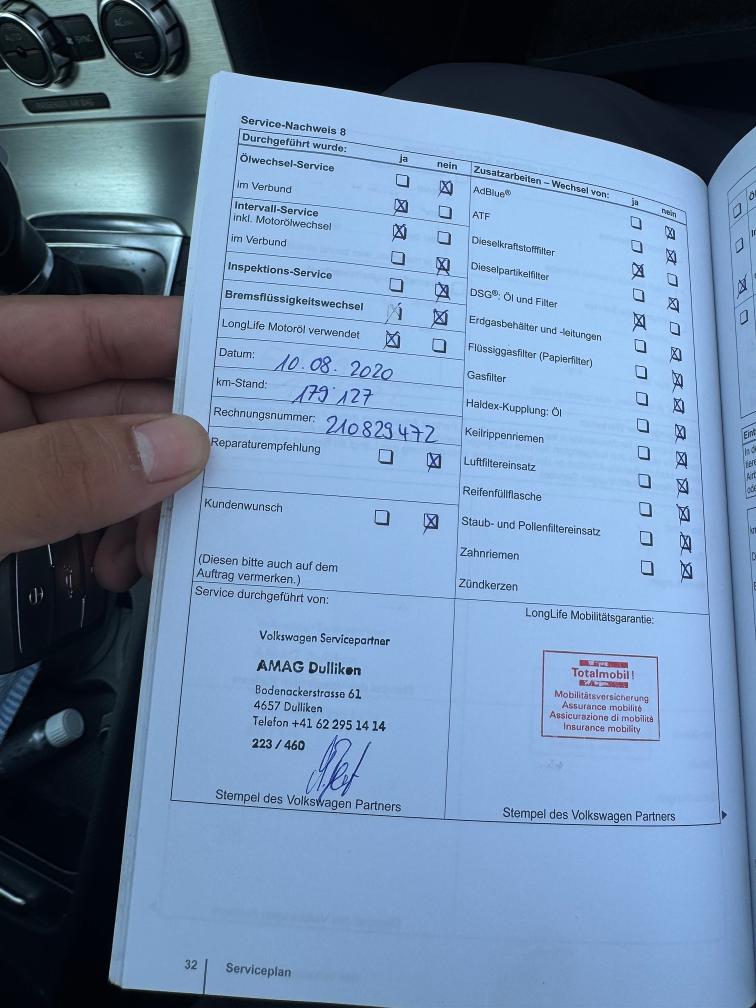 Service-Nachweis 8
Durchgeführt wurde:
ja
nein
Ölwechsel-Service
im Verbund
Intervall-Service
inkl. Motorölwechsel
im Verbund
Inspektions-Service
Bremsflüssigkeitswechsel
LongLife Motoröl verwendet
Datum: 10.08.2020
km-Stand: 179'127
Rechnungsnummer: 210829472
Reparaturempfehlung
Kundenwunsch
(Diesen bitte auch auf dem
Auftrag vermerken.)
Zusatzarbeiten – Wechsel von:
ja
nein
AdBlue®
ATF
Dieselkraftstofffilter
Dieselpartikelfilter
DSG®: Öl und Filter
Erdgasbehälter und -leitungen
Flüssiggasfilter (Papierfilter)
Gasfilter
Haldex-Kupplung: Öl
Keilrippenriemen
Luftfiltereinsatz
Reifenfüllflasche
Staub- und Pollenfiltereinsatz
Zahnriemen
Zündkerzen
Service durchgeführt von:
Volkswagen Servicepartner
AMAG Dulliken
Bodenackerstrasse 61
4657 Dulliken
Telefon +41 62 295 14 14
223 / 460
Stempel des Volkswagen Partners
LongLife Mobilitätsgarantie:
Totalmobil!
Mobilitätsversicherung
Assurance mobilité
Assicurazione di mobilità
Insurance mobility
Stempel des Volkswagen Partners
32
Serviceplan